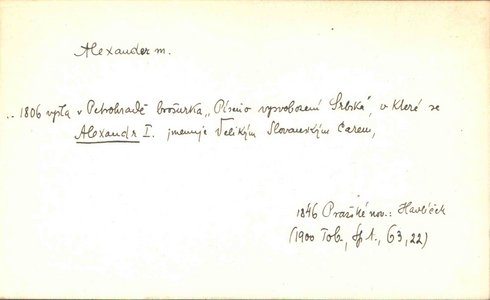 Alexander m.
.. 1806 vyšla v Petrohradě brožurka „Písmo vysvobození Srbska", v které se
Alexandr I. jmenuje Velikým Slovanským Carem,
1846 Pražské nov.: Havlíček
(1900 Tob., Sp 1., 63, 22)